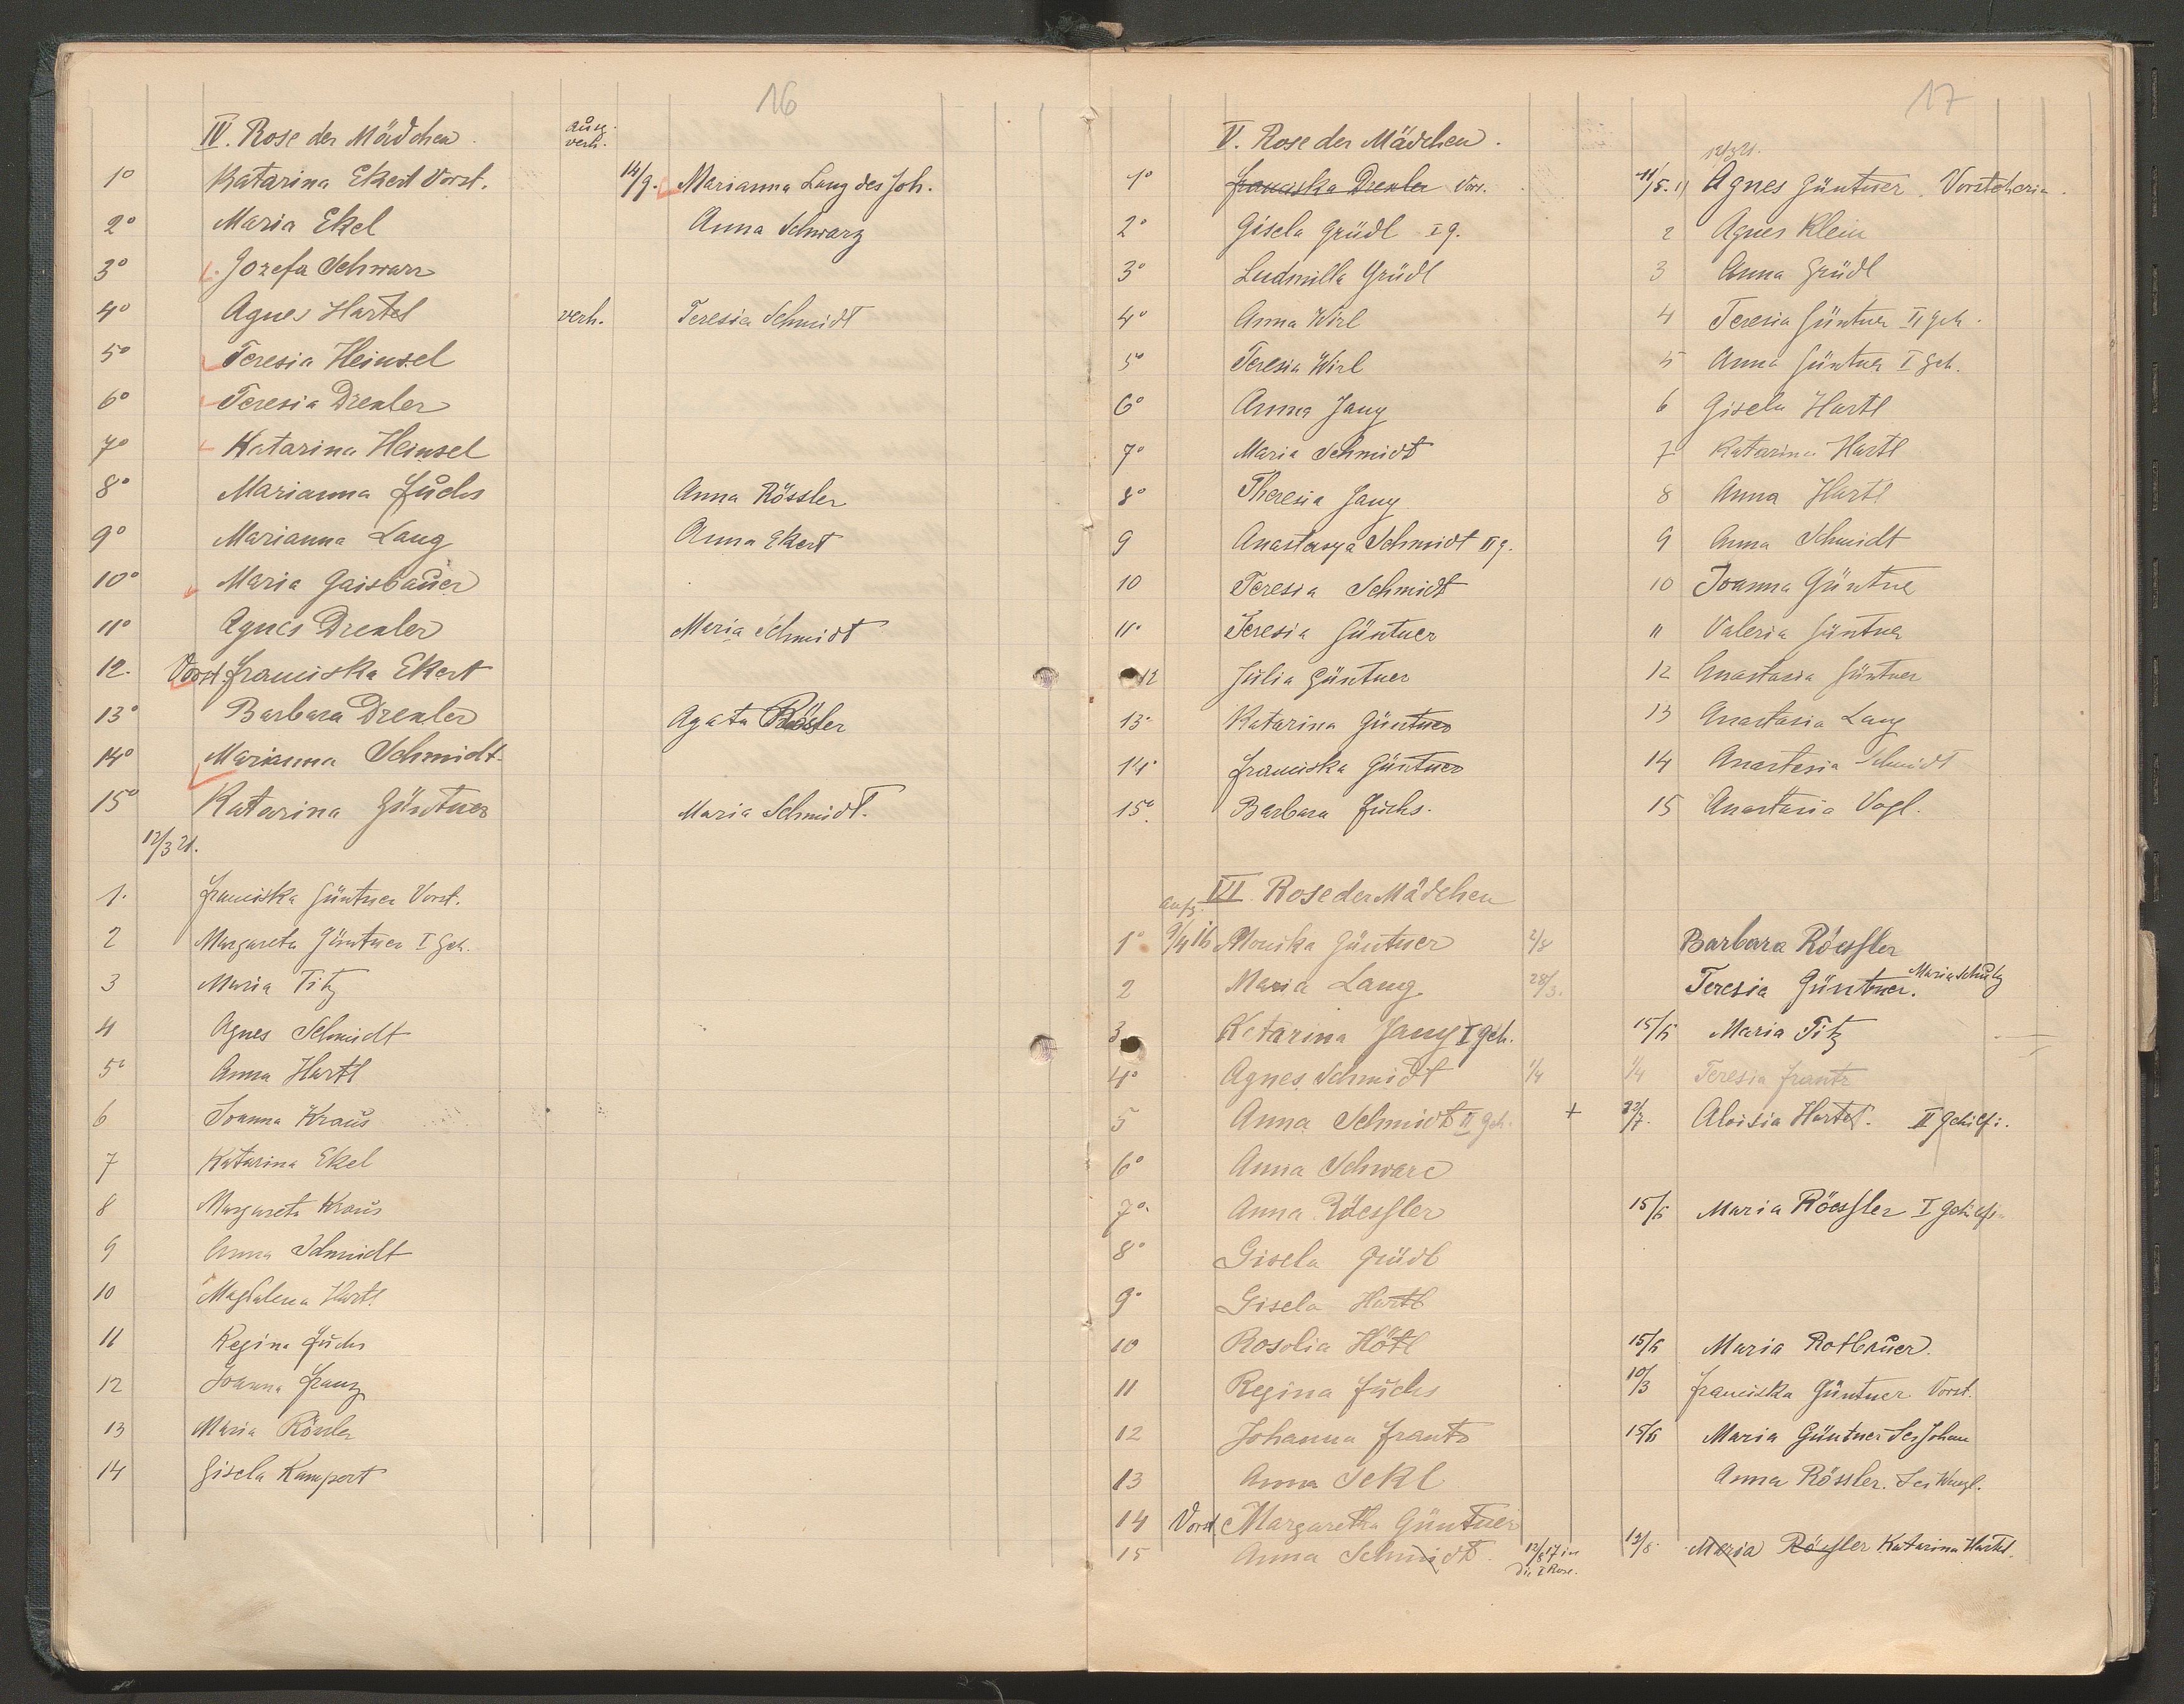 16
IV. Rose der Mädchen. ausg. verh.
1° Katarina Ekert Vorst. 14/9. Marianna Lang des Joh.
2° Maria Ekel Anna Schwarz
3° Jozefa Schwarz
4° Agnes Hartel verh. Teresia Schmidt
5° Teresia Heinsel
6° Teresia Drexler
7° Katarina Heinsel
8° Marianna Fuchs Anna Rössler
9° Marianna Lang Anna Ekert
10° Maria Gaisbauer
11° Agnes Drexler Maria Schmidt
12. Vorst. Franciska Ekert
13° Barbara Drexler Agata Rössler
14° Marianna Schmidt
15° Katarina Güntner Maria Schmidt.
12/3 21.
1. Franciska Güntner Vorst.
2 Margareta Güntner I Geh.
3 Maria Titz
4 Agnes Schmidt
5° Anna Hartl
6 Joanna Kraus
7 Katarina Ekel
8 Margareta Kraus
9 Anna Schmidt
10 Magdalena Hartl
11 Regina Fuchs
12 Joanna Franz
13 Maria Rössler
14 Gisela Rampert
17
V. Rose der Mädchen. 12/3 21.
1° Franciska Drexler Vors. 11/5. 1) Agnes Güntner. Vorsteherin.
2° Gisela Grüdl I g. 2 Agnes Klein
3° Ludmilla Grüdl 3 Anna Grüdl
4° Anna Wirl 4 Teresia Güntner II Geh.
5° Teresia Wirl 5 Anna Güntner I Geh.
6° Anna Jany 6 Gisela Hartl
7° Maria Schmidt 7 Katarina Hartl
8° Theresia Jany 8 Anna Hartl
9 Anastasya Schmidt II g. 9 Anna Schmidt
10 Teresia Schmidt 10 Joanna Güntner
11° Teresia Güntner 11 Valeria Güntner
12 Julia Güntner 12 Anastasia Güntner
13° Katarina Güntner 13 Anastasia Lang
14° Franciska Güntner 14 Anastasia Schmidt
15° Barbara Fuchs. 15 Anastasia Vogl.
VI Rose der Mädchen
aufg.
1° 9/4 16 Monika Güntner 2/8 Barbara Röessler
2 Maria Lang 28/3. Teresia Güntner. Maria Schultz
3 Katarina Jany I geh. 15/6 Maria Titz
4° Agnes Schmidt 1/4 1/4 Teresia Frantz
5 Anna Schmidt II geh. + 22/7. Aloisia Hartel. II Gehilfi.
6° Anna Schwarc
7° Anna Röessler 15/6 Maria Röessler I Gehilfi.
8° Gisela Grüdl
9° Gisela Hartl
10 Rosolia Hötl 15/6 Maria Rotbauer.
11 Regina Fuchs 10/3 Franciska Güntner Vorst.
12 Johanna Frantz 15/6 Maria Güntner des Johan
13 Anna Jekl Anna Rössler. des Wenzl.
14 Vorst Margaretha Güntner
15 Anna Schmidt. 12/8 17 in die I Rose. 12/8 Maria Röessler Katarina Hartel.